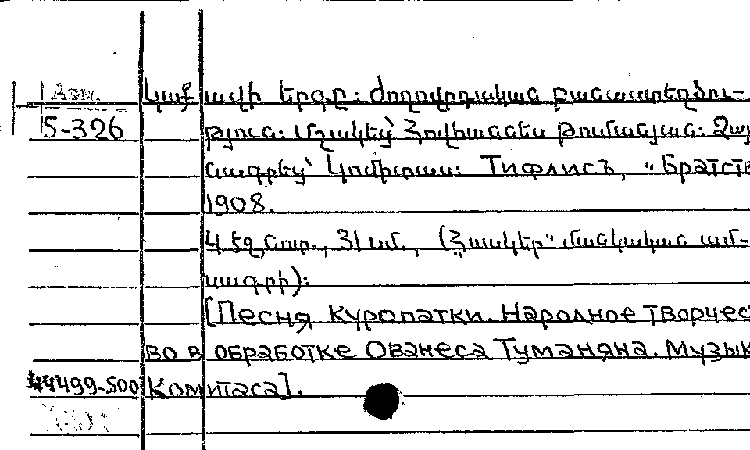 Հտպ.
5-326
Կաքավի երգը: Ժողովրդական բանաստեղծու-
թյուն: Մշակեց՝ Հովհաննես Թումանյան: Ձայ
նագրեց՝ Կոմիտաս: Тифлисъ, "Братств
1908.
4 չհ. նոտ., 31 սմ., („Հասկեր" մանկական ամ-
սագրի):
[Песня куропатки. Народное творчес
во в обработке Ованеса Туманяна. Музык
44499-500 Комитаса].